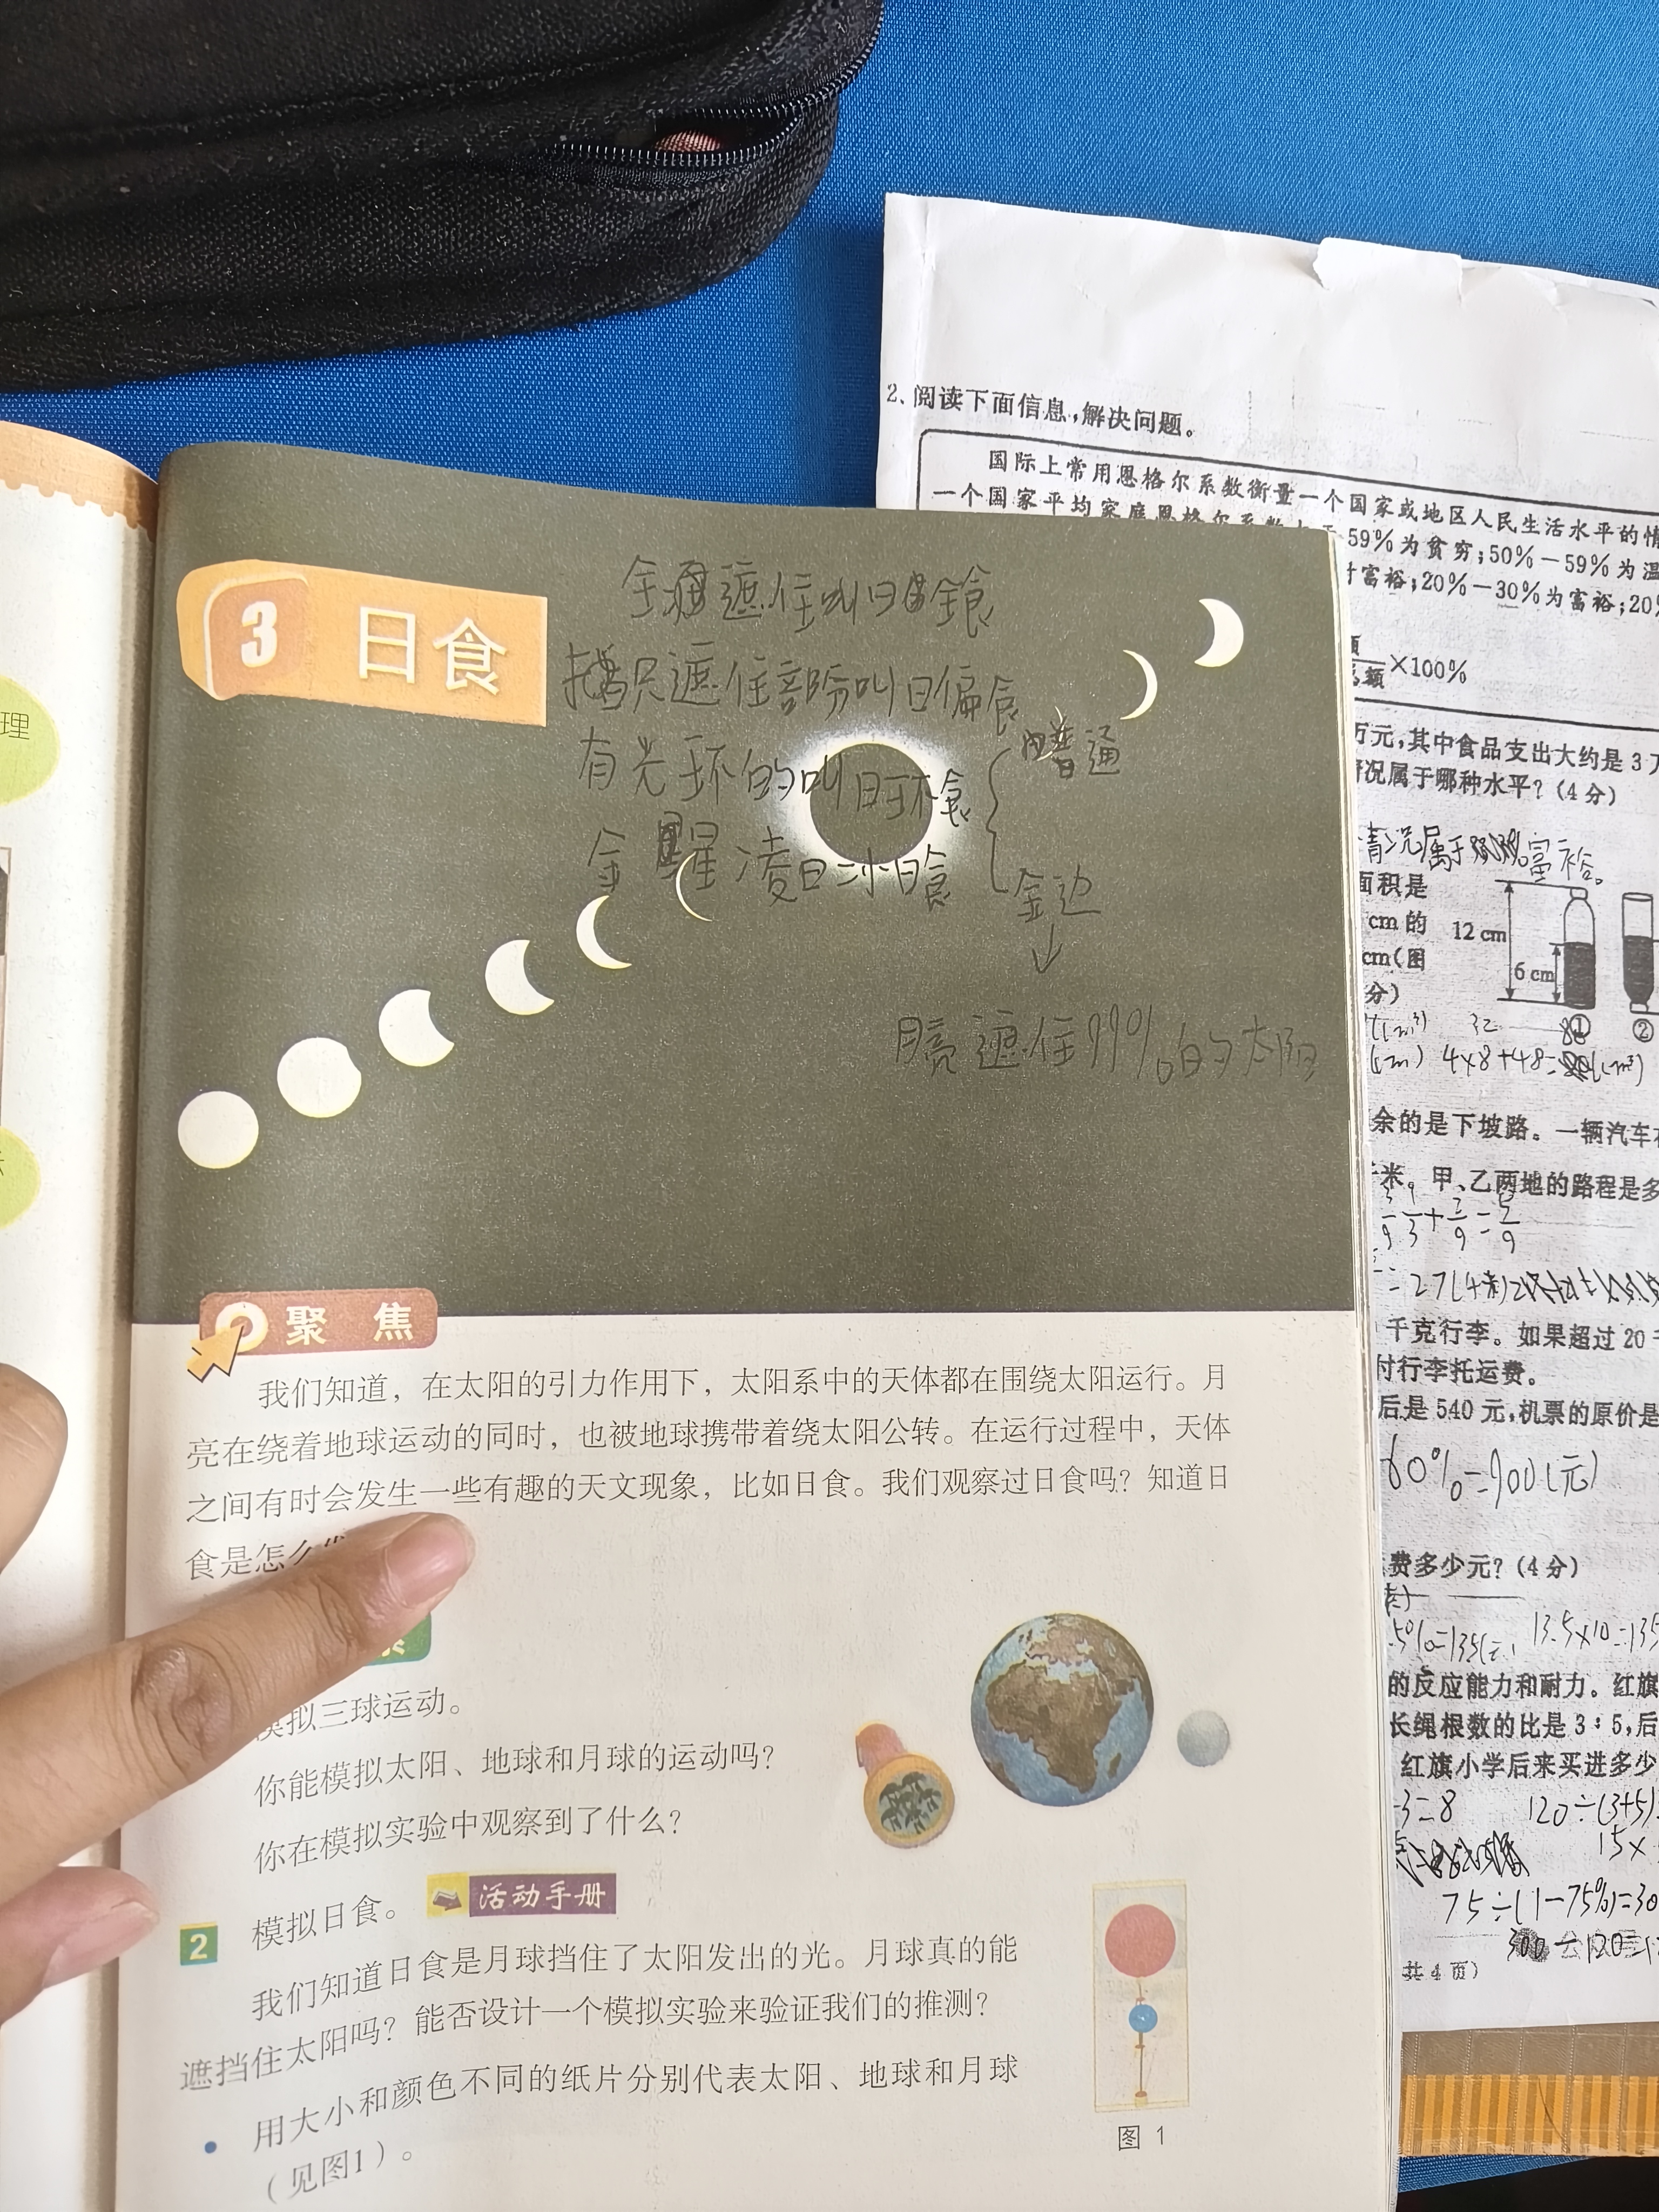 3 日食
全遮住叫日全食
只遮住部分叫日偏食
有光环的叫日环食
普通
金星凌日 小日食
金边
月亮遮住99%的太阳
聚 焦
我们知道，在太阳的引力作用下，太阳系中的天体都在围绕太阳运行。月
亮在绕着地球运动的同时，也被地球携带着绕太阳公转。在运行过程中，天体
之间有时会发生一些有趣的天文现象，比如日食。我们观察过日食吗？知道日
食是怎么
模拟三球运动。
你能模拟太阳、地球和月球的运动吗？
你在模拟实验中观察到了什么？
2 模拟日食。 活动手册
我们知道日食是月球挡住了太阳发出的光。月球真的能
遮挡住太阳吗？能否设计一个模拟实验来验证我们的推测？
• 用大小和颜色不同的纸片分别代表太阳、地球和月球
（见图1）。
图 1
理
2、阅读下面信息，解决问题。
国际上常用恩格尔系数衡量一个国家或地区人民生活水平的情
一个国家平均家庭恩格尔系数大于59%为贫穷；50%－59%为温
富裕；20%－30%为富裕；20%
额×100%
万元，其中食品支出大约是3万
情况属于哪种水平？（4分）
情况属于富裕。
面积是
cm的
cm（图
分）
12 cm
6 cm
① ②
余的是下坡路。一辆汽车
千米。甲、乙两地的路程是多
千克行李。如果超过20千
付行李托运费。
后是540元，机票的原价是
60%=900(元)
费多少元？（4分）
13.5×10=135
的反应能力和耐力。红旗
长绳根数的比是3∶5，后
红旗小学后来买进多少
3=8 120÷(3+5)
15×
75÷(1-75%)=30
共4页）